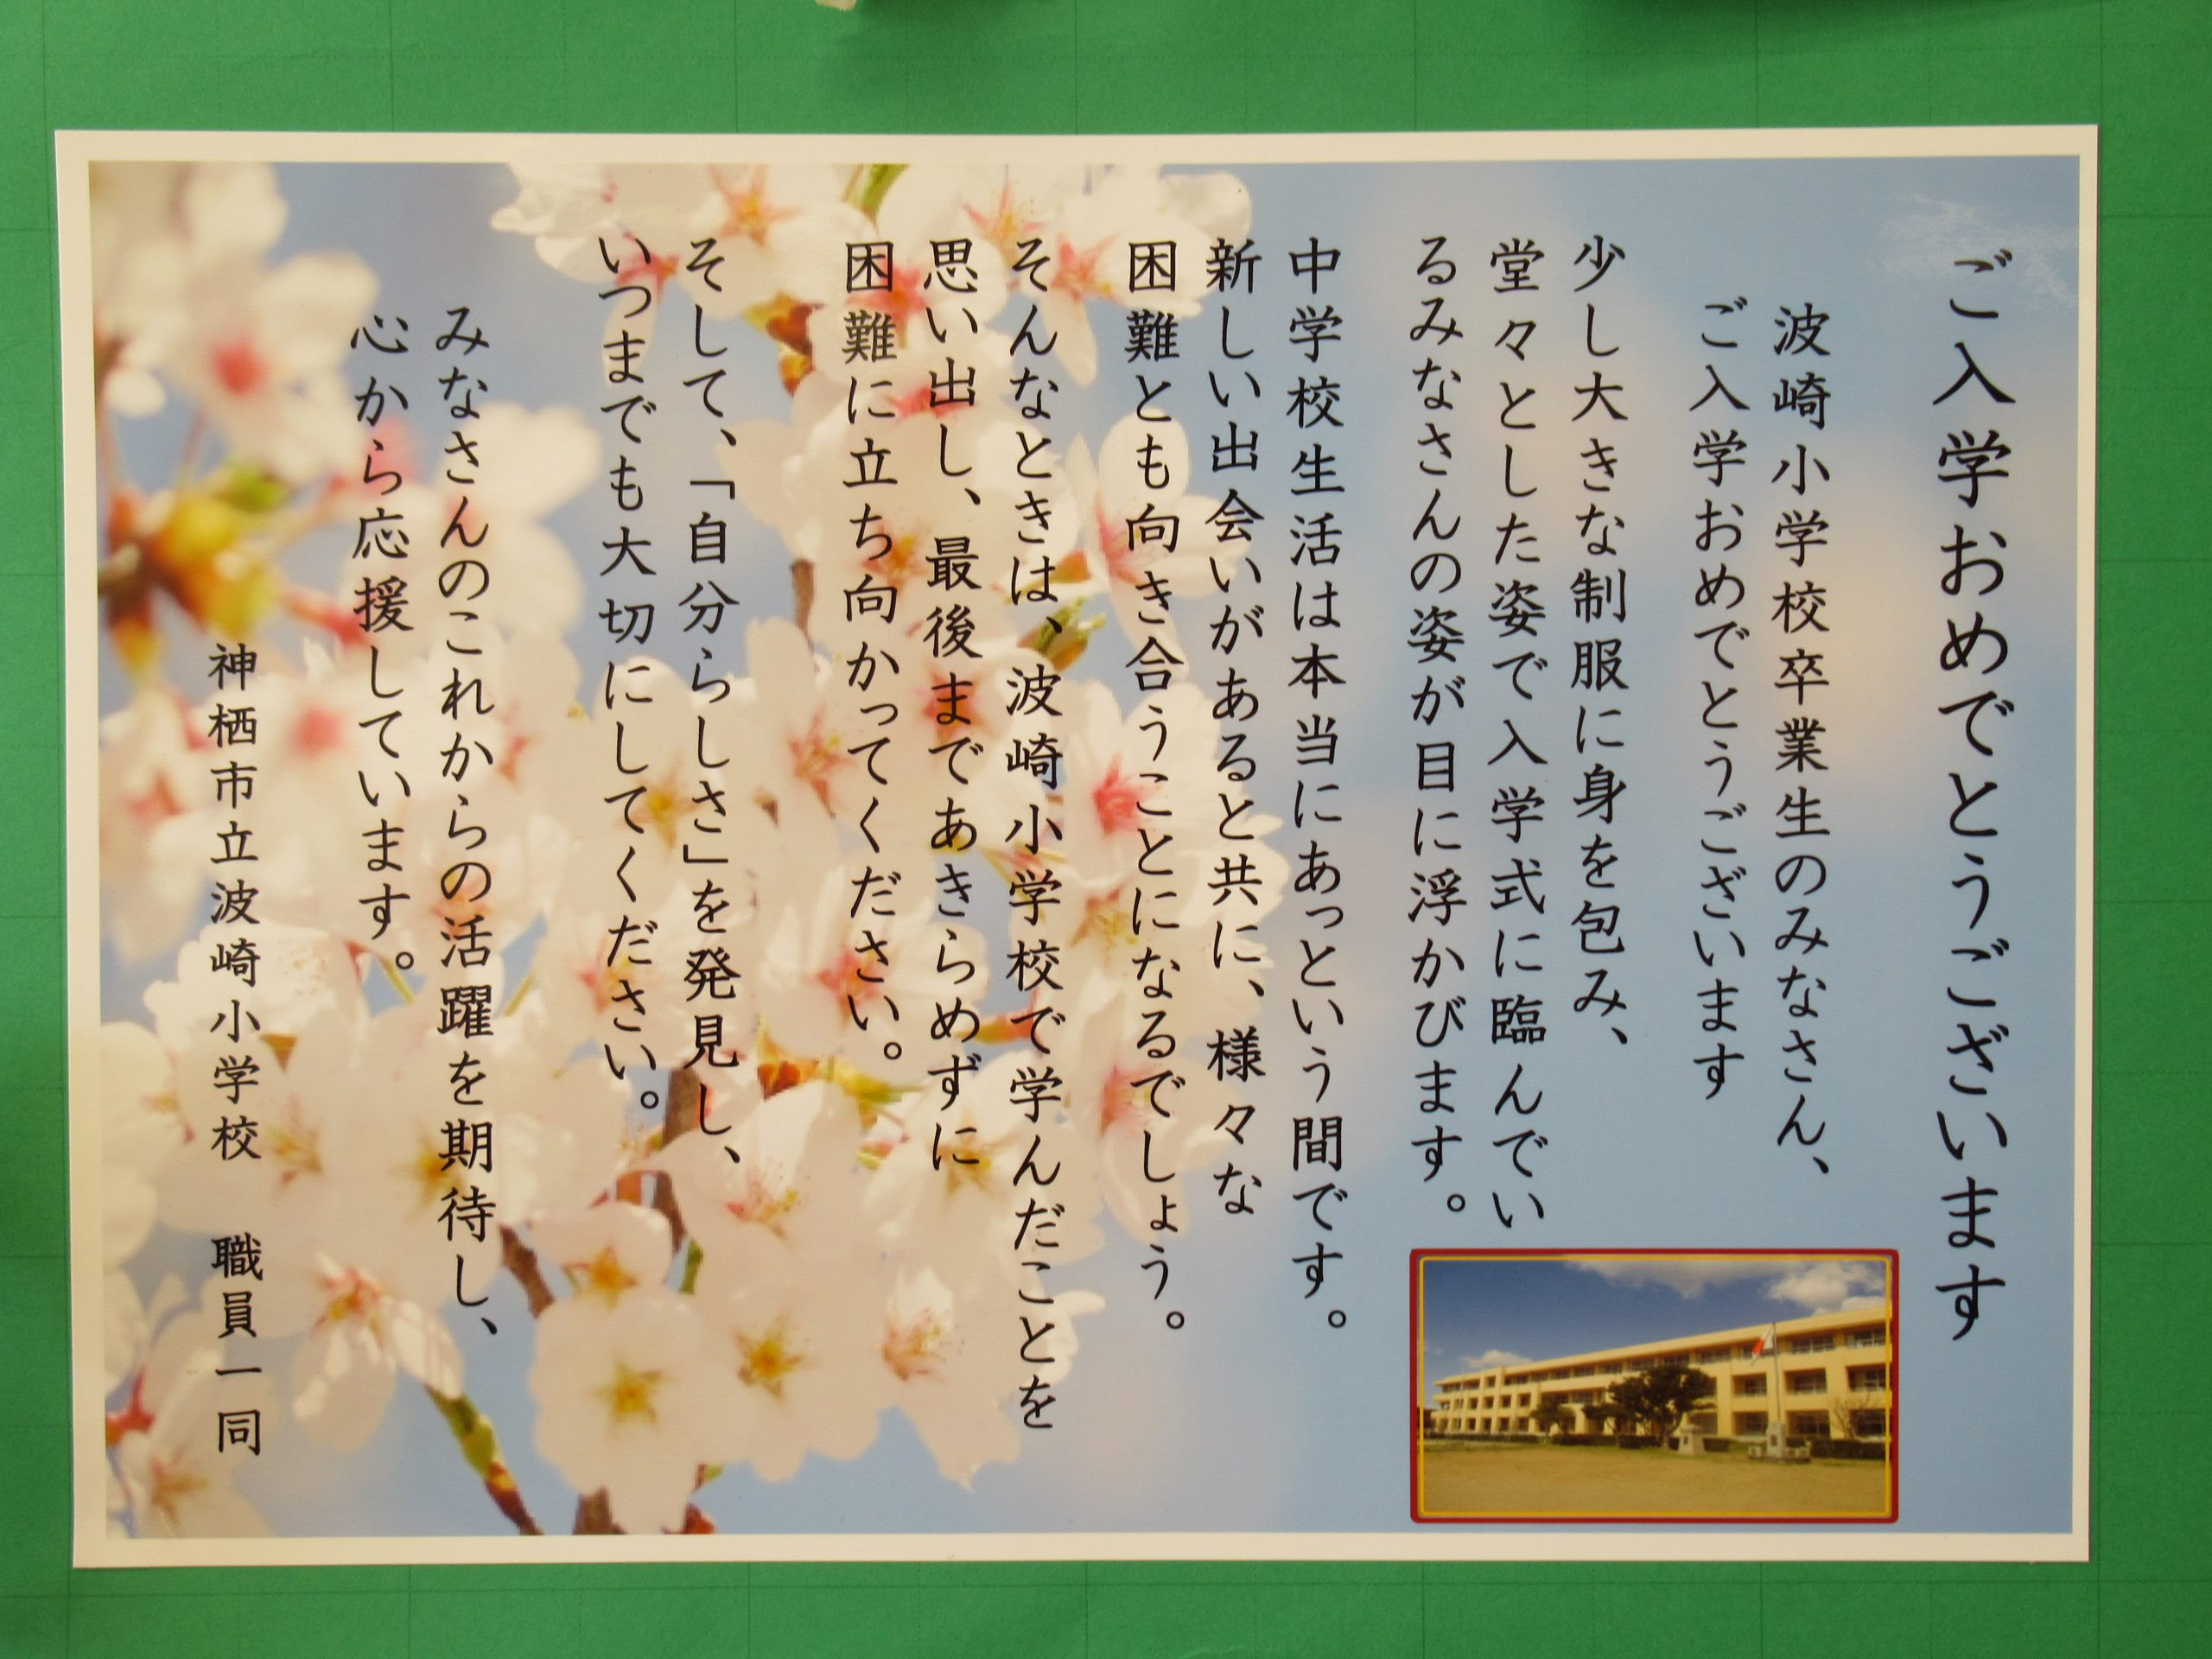 ご入学おめでとうございます
波崎小学校卒業生のみなさん、
ご入学おめでとうございます
少し大きな制服に身を包み、
堂々とした姿で入学式に臨んでい
るみなさんの姿が目に浮かびます。
中学校生活は本当にあっという間です。
新しい出会いがあると共に、様々な
困難とも向き合うことになるでしょう。
そんなときは、波崎小学校で学んだことを
思い出し、最後まであきらめずに
困難に立ち向かってください。
そして、「自分らしさ」を発見し、
いつまでも大切にしてください。
みなさんのこれからの活躍を期待し、
心から応援しています。
神栖市立波崎小学校 職員一同